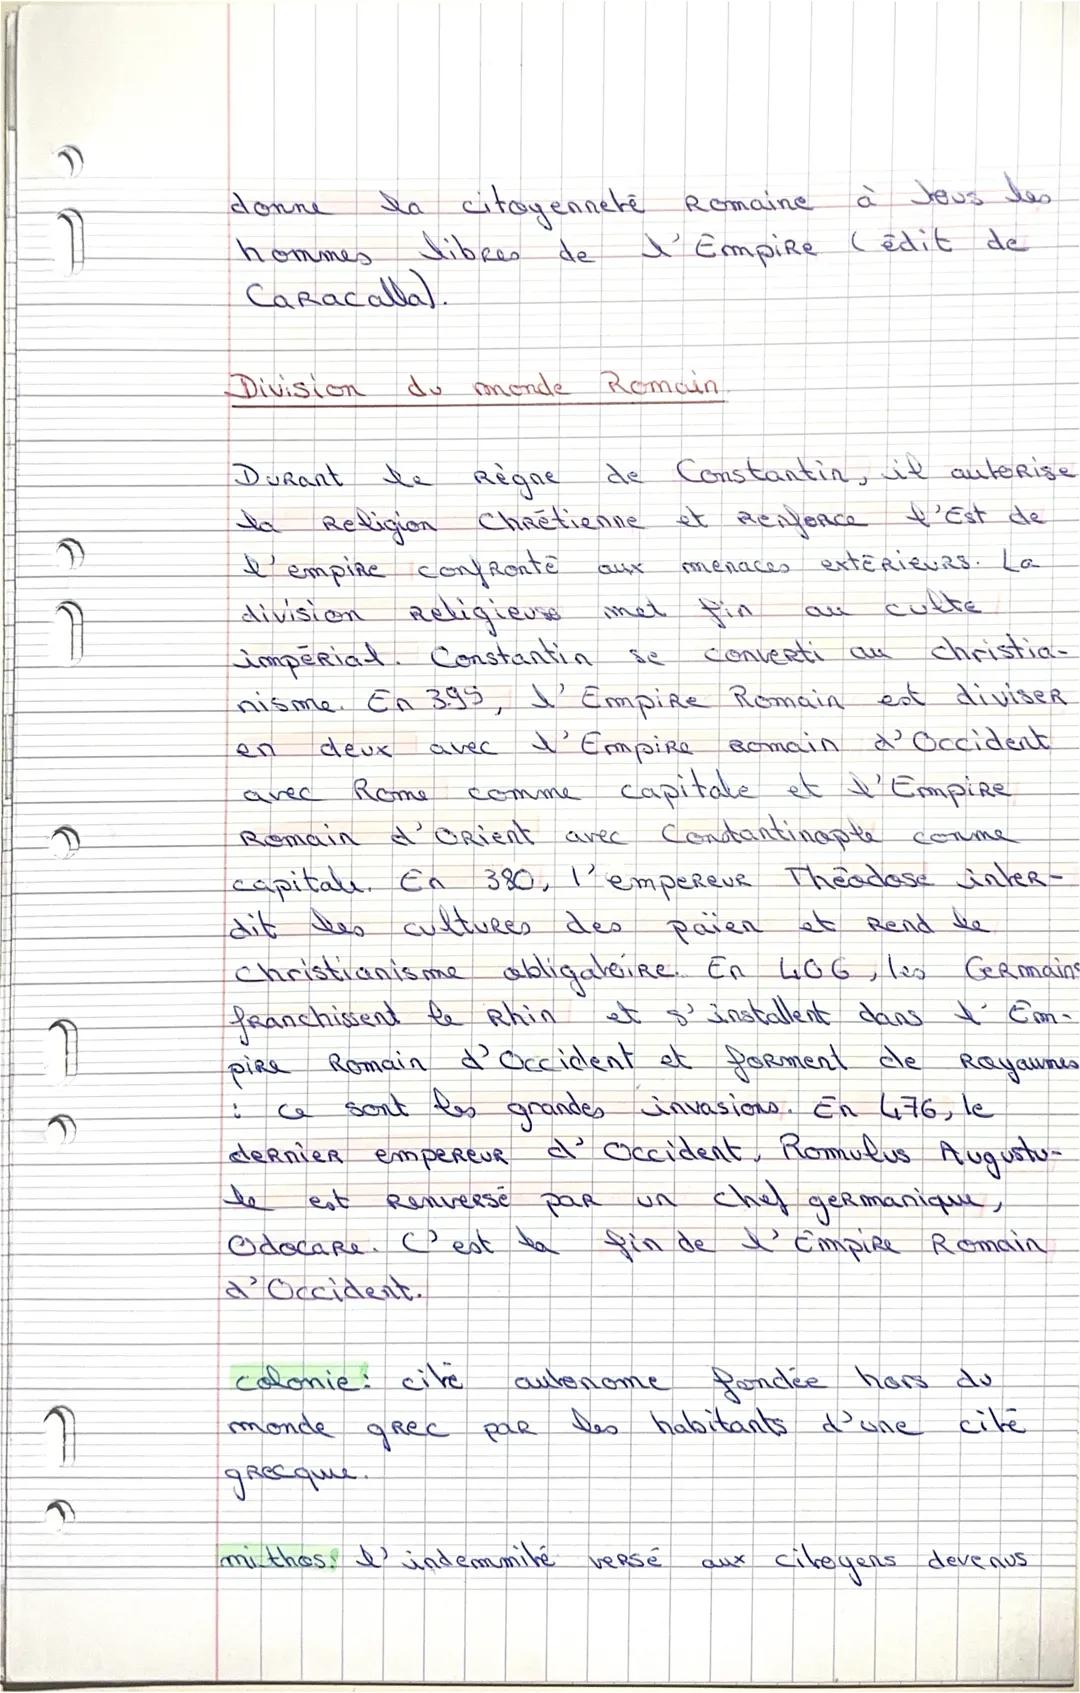 donne la citoyenneté Romaine à tous les
hommes libres de l'Empire (édit de
Caracalla).
Division du monde Romain.
Durant le Règne de Constantin, il autorise
la Religion Chrétienne et Renforce l'Est de
l'empire confronté aux menaces extérieurs. La
division Religieuse met fin au culte
impérial. Constantin se converti au christia-
nisme. En 395, l'Empire Romain est diviser
en deux avec l'Empire Romain d'Occident
avec Rome comme capitale et l'Empire
Romain d'Orient avec Constantinople comme
capitale. En 380, l'empereur Théodose inter-
dit les cultures des païen et Rend le
christianisme obligatoire. En 406, les Germains
franchissent le Rhin et s'installent dans l'Em-
pire Romain d'Occident et forment de Royaumes
: ce sont les grandes invasions. En 476, le
dernier empereur d'Occident, Romulus Augustu-
le est Renversé par un chef germanique,
Odocare. C'est la fin de l'Empire Romain
d'Occident.
colonie: cité autonome fondée hors du
monde grec par les habitants d'une cité
grecque.
mithos: l'indemmité versé aux citoyens devenus